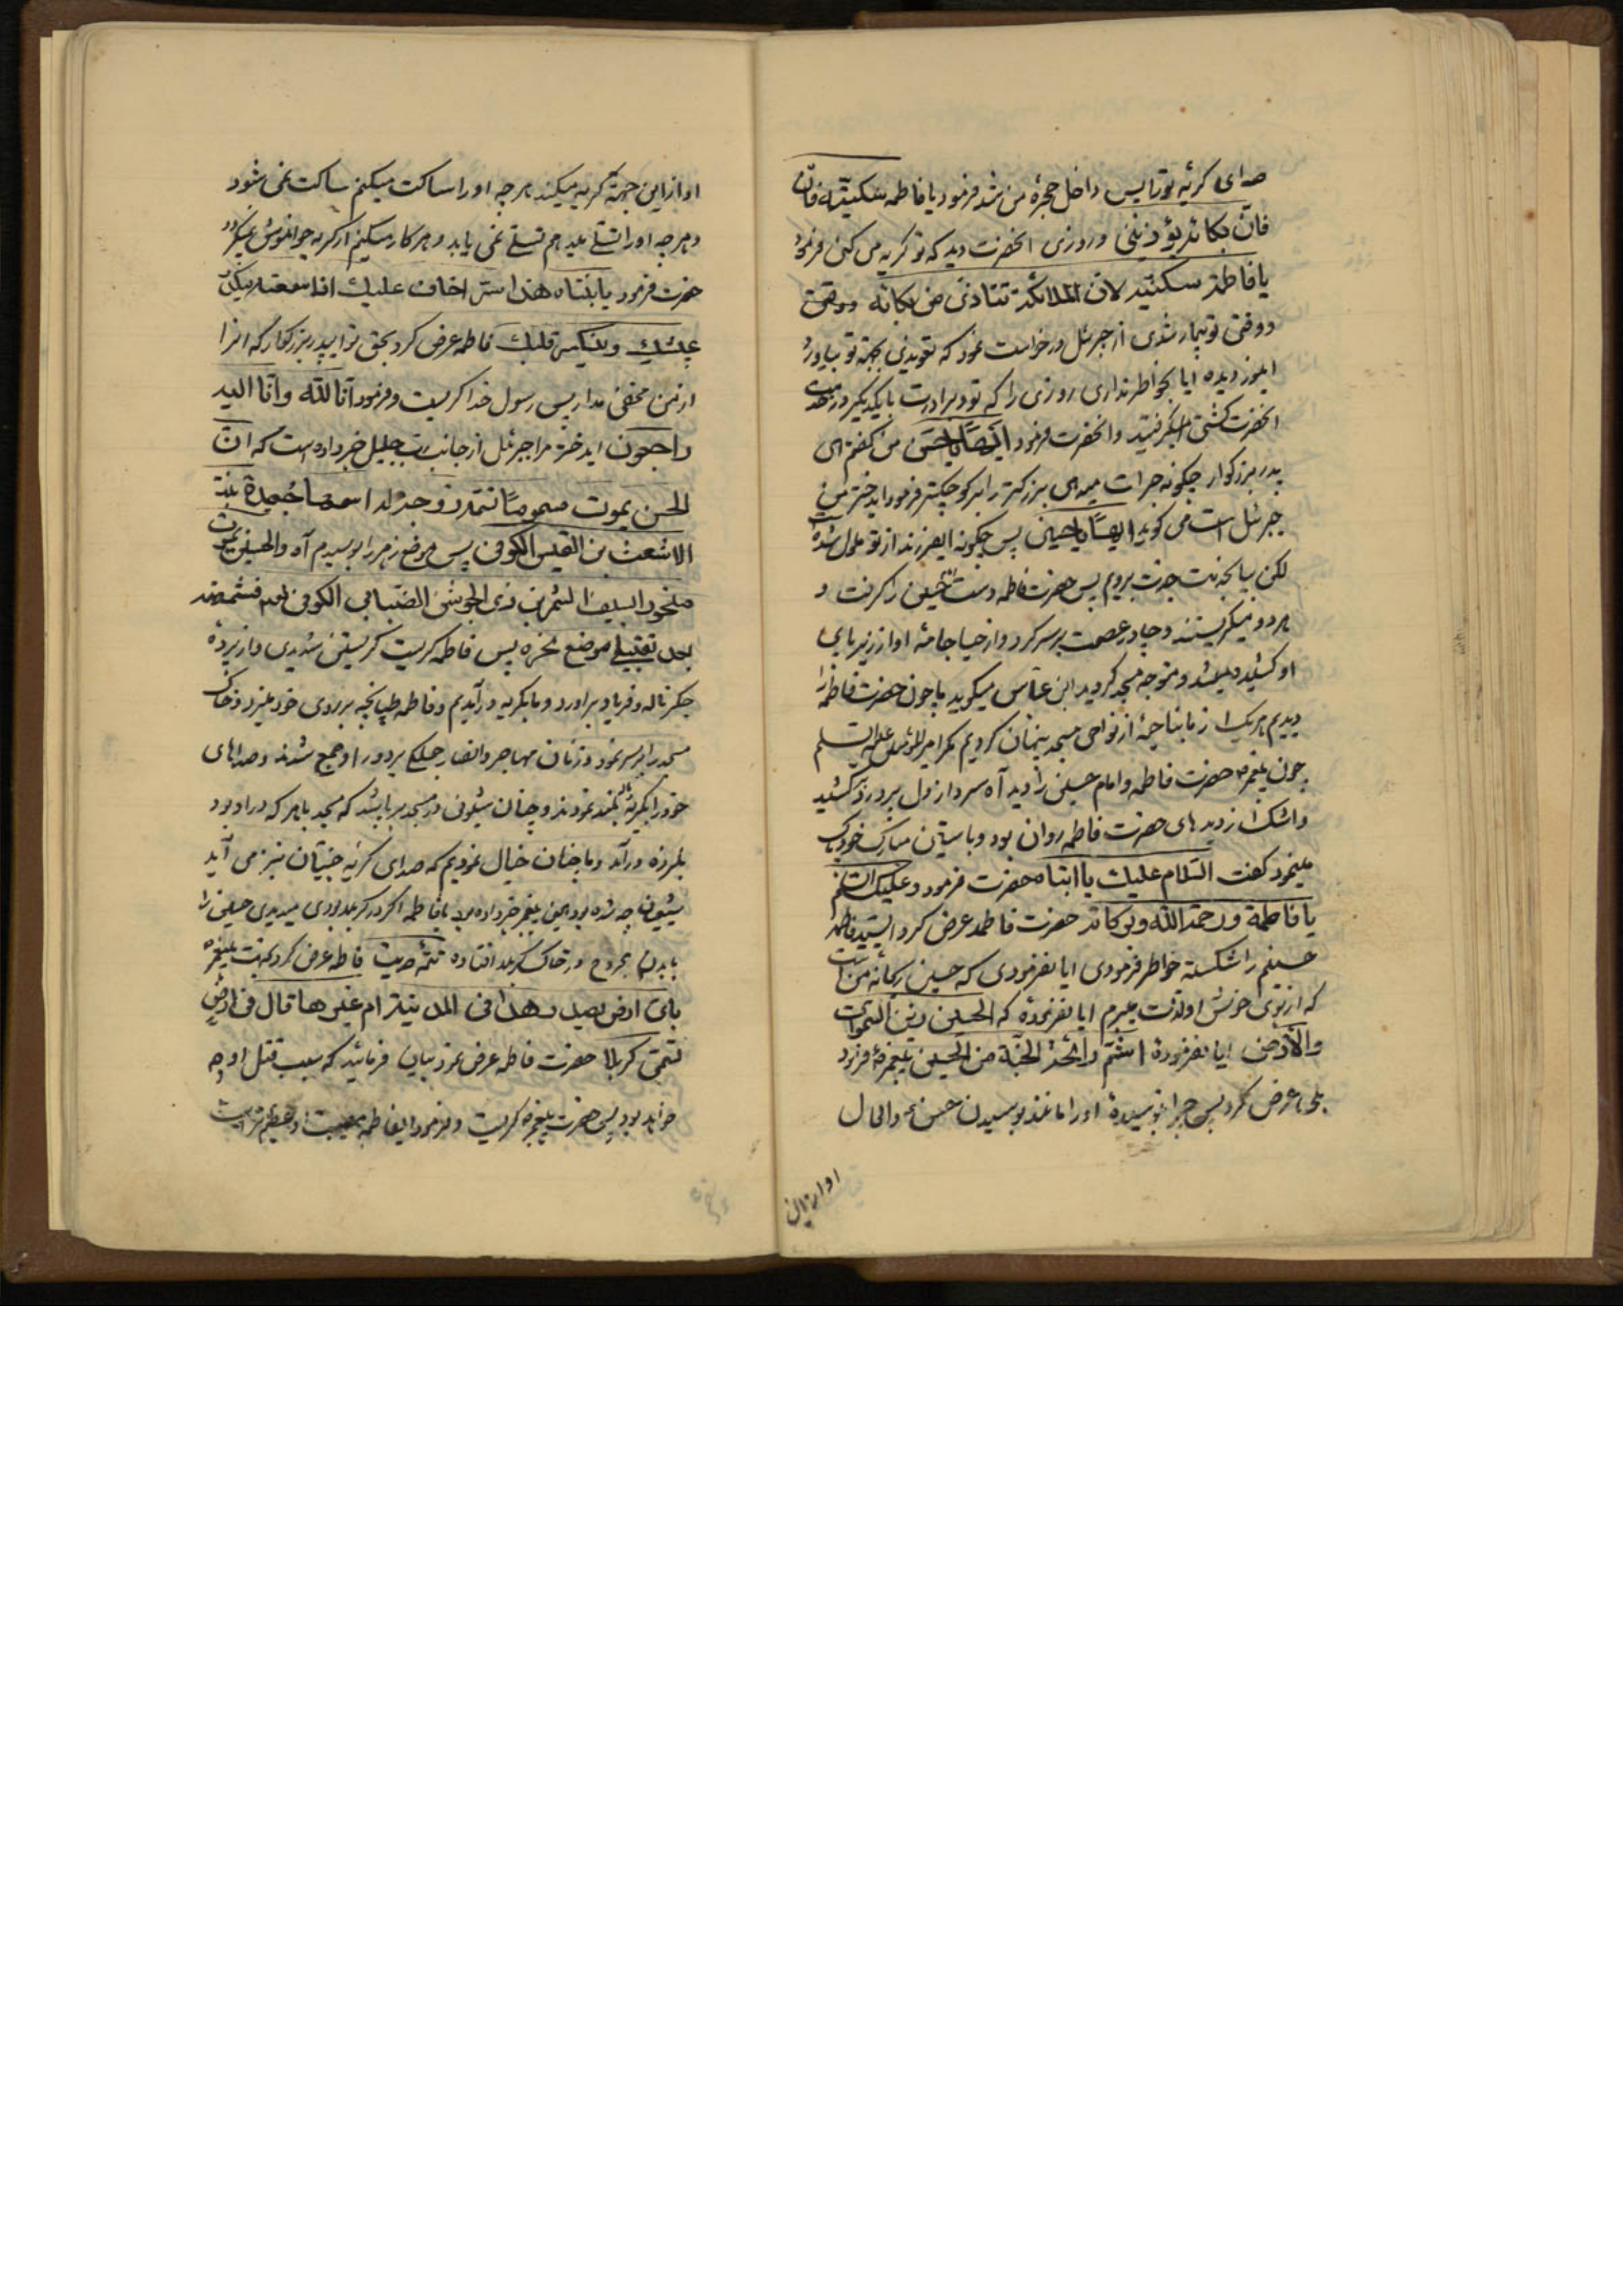 صدای گریه تو را پس داخل حجرهٔ من شد فرمود یا فاطمه سکتیه فان
فان بکائه یؤذینی و روزی انحضرت دید که تو گریه می کنی فرمود
یا فاطمة سکتیه لان الملائکة تتاذی من بکائه و وقتی
دوقتی تو بیمار شدی از جبرئیل درخواست نمود که تعویذی بجهة تو بیاورد
اینور دیده ایا بخواطر نداری روزی را که تو و برادرت با یکدیگر در خدمت
انحضرت کشتی میگرفتید و انحضرت فرمود ایها یا حسن من گفتم ای
پدر بزرگوار چگونه جرات میدهی بزرگتر را بر کوچکتر فرمود ایدختر من
جبرئل است می گوید ایها یا حسین پس چگونه ایفرزند از تو ملول شده
لکن بیا بخدمت جدت برویم پس حضرت فاطمه دست حسین را گرفت و
هر دو میگریستند و چادر عصمت بر سر کرد و از حیا جامهٔ او از زیر پای
او کشیده میشد و متوجه مسجد گردید ابن عباس میگوید ما چون حضرت فاطمه را
دیدیم هر یک از ما بناحیهٔ از نواحی مسجد پنهان کردیم مگر امیرالمؤمنین علیه السلم
چون پیغمبر حضرت فاطمه و امام حسین را دید آه سرد از دل پر درد کشید
و اشک از دیدهای حضرت فاطمه روان بود و با استین مبارک خود پاک
مینمود گفت السلام علیک یا ابتاه حضرت فرمود و علیک السلم
یا فاطمة و رحمة الله و برکاته حضرت فاطمه عرض کرد
حسینم را شکسته خواطر فرمودی ایا نفرمودی که حسین ریحانهٔ من است
که از بوی خوش او لذت میبرم ایا نفرمودهٔ که الحسین زین السموات
والارض ایا نفرمودهٔ اشتم رائحة الجنة من الحسین پیغمبر فرمود
بلی عرض کرد پس چرا نبوسیدهٔ او را مانند بوسیدن حسن و الحال
او از این
او از این جهة گریه میکند هر چه او را ساکت میکنم ساکت نمی شود
و هر چه او را تسلی میدهم تسلی نمی یابد و هر کار میکنم از گریه خواموش نمیگردد
حضرت فرمود یا بنتاه هذا سر اخاف علیک اذا سمعته
عیشک وینکسر قلبک فاطمه عرض کرد بحق تو ایپدر بزرگوار که انرا
از من مخفی مدار پس رسول خدا گریست و فرمود انا لله وانا الیه
راجعون ایدختر مرا جبرئل از جانب رب جلیل خبر داده است که ان
الحسن یموت مسموما زوجة له اسمها جعیدة بنت
الاشعث بن القیس الکوفی پس موضع زهر را بوسیدم آه والحسین یموت
منحورا بسیف الشمر بن ذی الجوشن الضبابی الکوفی
بعد تقبیلی موضع نحره پس فاطمه گریست گریستن شدیدی و از پردهٔ
جگر ناله و فریاد براورد و ما بگریه درآمدیم و فاطمه طپانچه بر روی خود میزد و خاک
مسجد را بر سر نمود و زنان مهاجر و انصار جملگی بر دور او جمع شدند و صداهای
خود را بگریه بلند نمودند و چنان شیونی در مسجد برپا شد که مسجد با هر که در او بود
بلرزه درآمد و ما چنان خیال نمودیم که صدای گریهٔ جنیان نیز می آید
شیعیان چه شده بود همین پیغمبر خبر داده بود یا فاطمه اگر در کربلا بودی میدیدی حسین را
با بدن مجروح در خاک کربلا افتاده تتمهٔ حدیث فاطمه عرض کرد بخدمت پیغمبر
بای ارض یصیر هذا فی المدینة ام غیرها قال فی ارض
تسمی کربلا حضرت فاطمه عرض نمود بیان فرمائید که سبب قتل او چه
خواهد بود پس حضرت پیغمبر گریست و فرمود ایفاطمه مصیبت او عظیم تر است